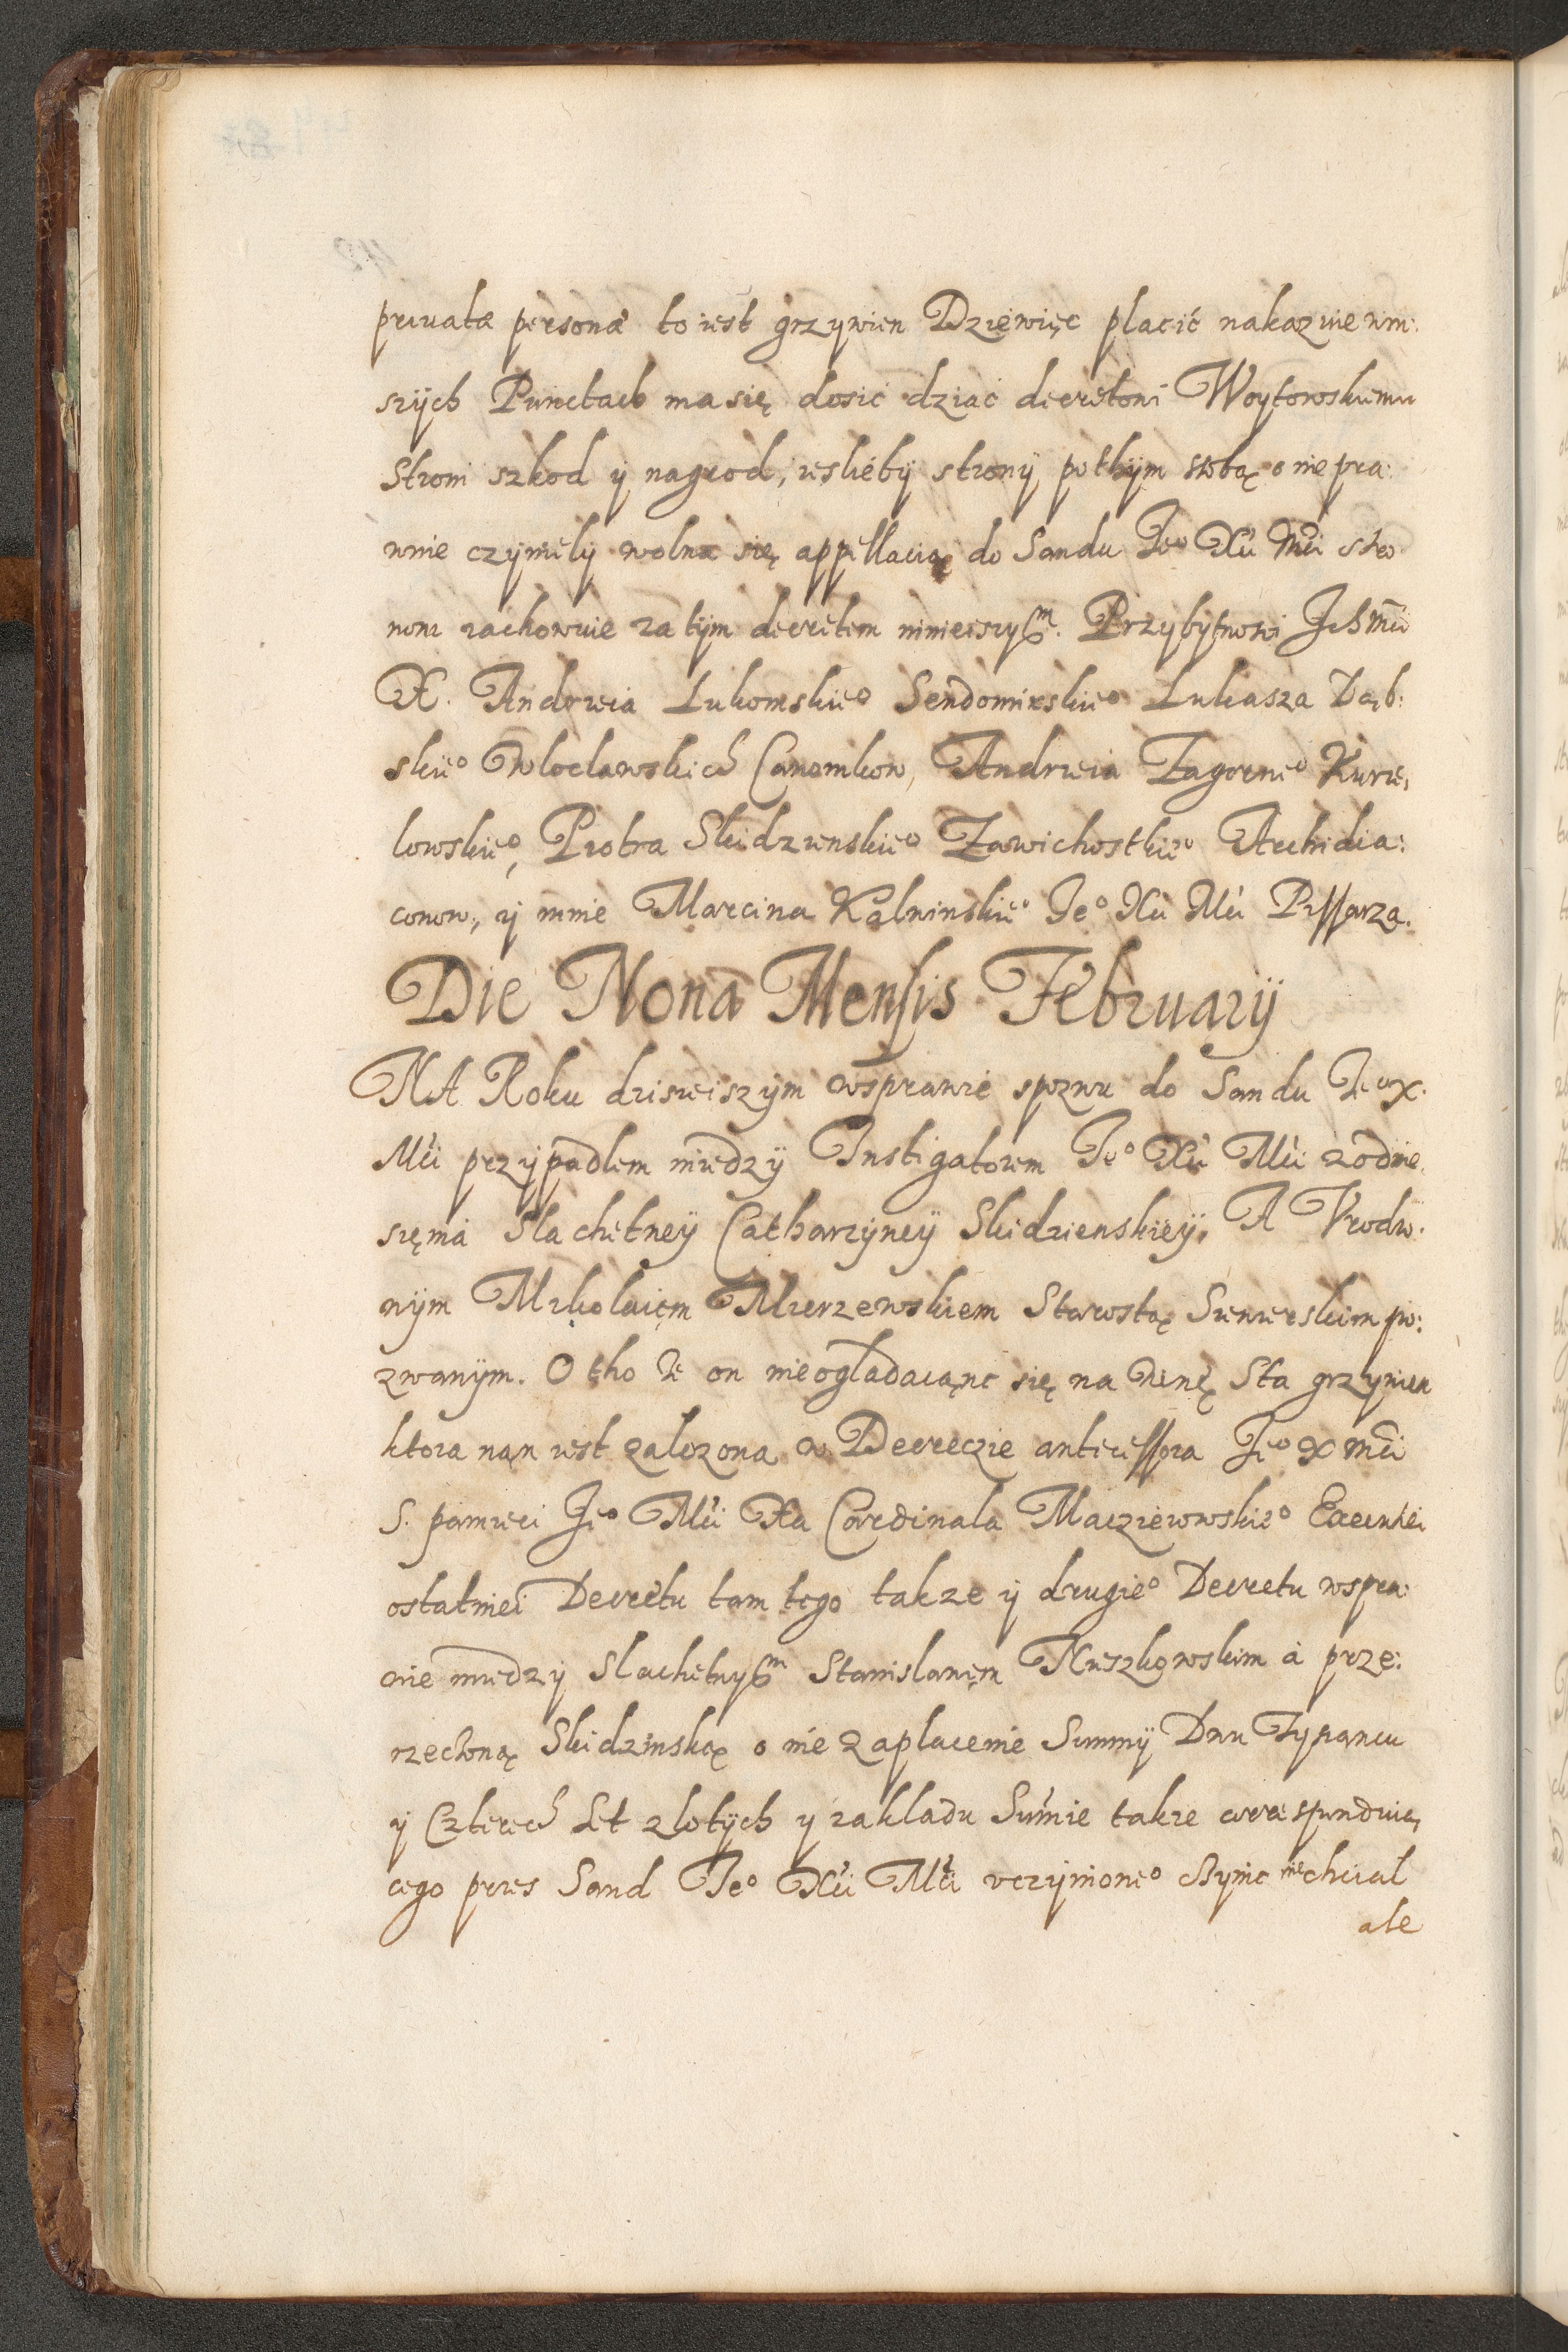 priuatæ personæ to iest grzywien Dziewięc płacić nakazuie win:
szych Punctach ma się dosić dziać decretowi Woytowskiemu
Stroni szkod y nagrod, iesliby strony po thym ssobą o nie pra:
wnie czyniely wolna się appellacią do Sandu Jeo Xu Mci stro
nom zachowuie za tym decretem ninieiszym. Przybytnosi Ichmci
X. Andrzeia Lukomskieo Sendomirskieo Lukasza Dąb:
skieo Wloclawskich Canonikow, Andrzeia Zagorneo Kurze,
lowskieo, Piotra Skidzienskieo Zawichostkieo Archidia:
conow, y mnie Marcina Kalwinskieo Jeo Xu Mci Pissarza.
Die Nona Mensis February
NA Roku dzisieiszym wsprawie spozwu do Sandu Jeo X.
Mci przypadlem miedzy Instigatorem Jeo Xu Mci zodnie
sięnia Slachetney Catharzyney Skidzienskiey, A Vrodzo.
nym Mikolaięm Mierzewskiem Starostą Siewierskim po:
zwanym. O tho że on nieogladaiąnc się na winę Sta grzywien
ktora nan iest zalozona w Decreczie antecessora Jeo X Mci
S. pamieci Jeo Mci Xa Cardinala Macziewowskieo Execukei
ostatniei Decretu tam tego takze y drugieo Decretu wspra:
wie miedzy Slachetnym Stanislawęm Myszkowskim á prze:
rzeczoną Skidzinską o nie zaplacenie Summy Dwu Tysiancu
y Czterech Set zlotych y zakladu Sumie takze correspondui,
cego przes Sand Jeo Xu Mci vczynioneo czynic niechcial
ale